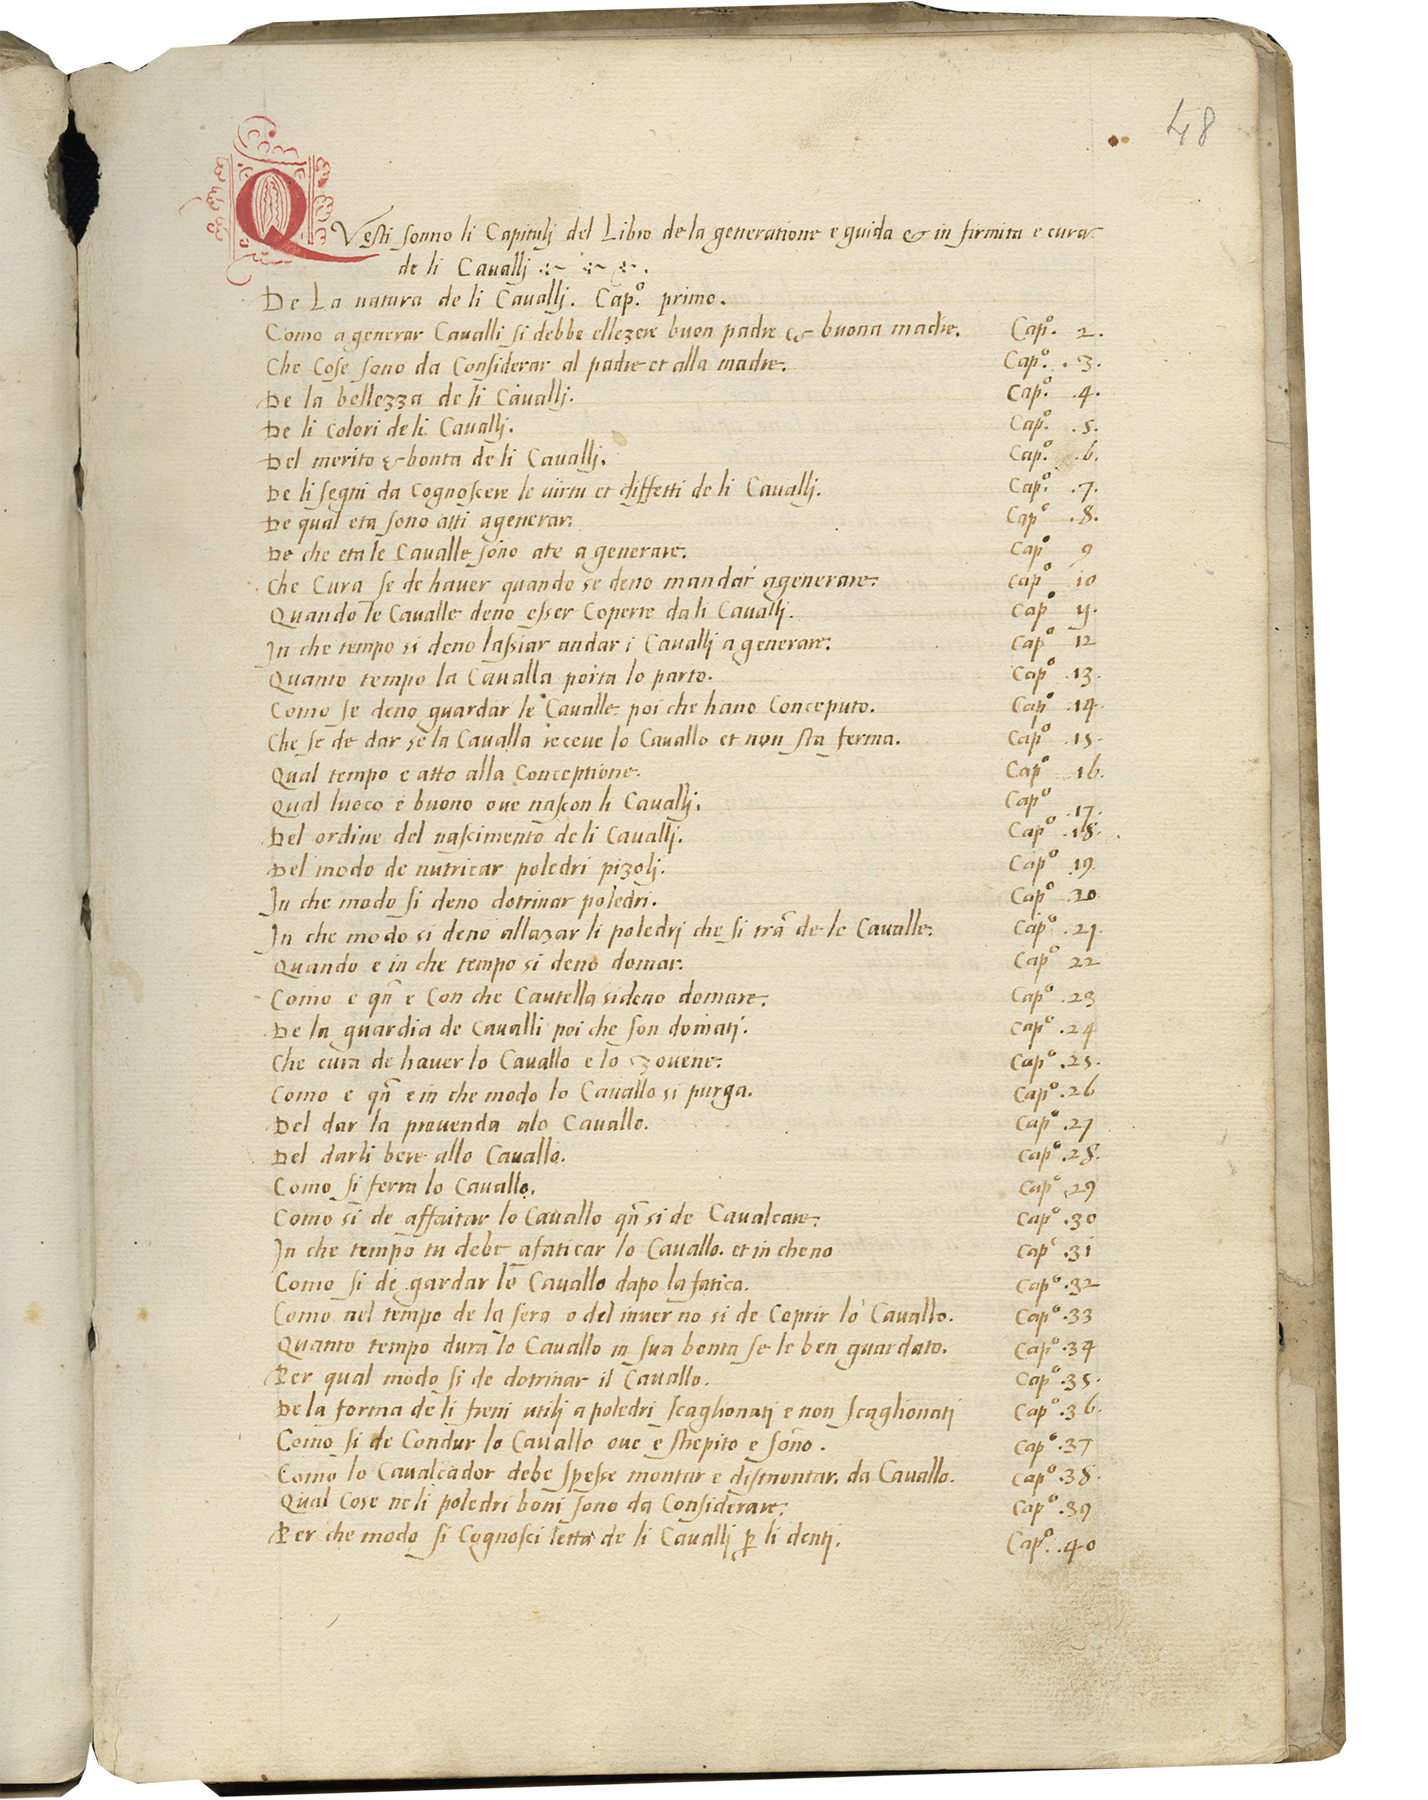 48
QVesti sonno li Capitulj del Libro de la generatione e guida & in firmita e cura
de li Cavallj
De La natura de li Cavallj. Cap.º primo.
Como a generar Cavalli si debbe ellezere buon padre & buona madre. Capº. 2.
Che Cose sono da Considerar al padre et alla madre. Capº. 3.
De la bellezza de li Cavallj. Capº. .4.
De li Colori de li Cavallj. Capº. .5.
Del merito & bonta de li Cavallj. Capº. .6.
De li segni da Cognoscere le virtu et diffetti de li Cavallj. Capº. .7.
De qual eta sono atti a generar. Capº .8.
De che eta le Cavalle sono ate a generare. Capº 9
Che Cura se de haver quando se deno mandar a generare. Capº 10
Quando le Cavalle deno esser Coperte da li Cavallj. Capº 11.
In che tempo si deno lassiar andar i Cavallj a generare. Capº 12
Quanto tempo la Cavalla porta lo parto. Capº .13.
Como se deno guardar le Cavalle poi che hano Conceputo. Capº .14.
Che se de dar se la Cavalla receve lo Cavallo et non sta ferma. Capº .15.
Qual tempo e atto alla Conceptione. Capº .16.
Qual luoco e buono ove nascon li Cavallj. Capº .17.
Del ordine del nascimento de li Cavallj. Capº .18.
Del modo de nutricar poledri pizolj. Capº .19.
In che modo si deno dotrinar poledri. Capº .20
In che modo si deno allazar li poledrj che si trã de le Cavalle. Capº .21.
Quando e in che tempo si deno domar. Capº 22
Como e qñ e Con che Cautella si deno domare. Capº .23
De la guardia de Cavalli poi che son domatj. Capº .24
Che cura de haver lo Cavallo e lo zovene. Capº .25.
Como e qñ e in che modo lo Cavallo si purga. Capº .26
Del dar la provenda alo Cavallo. Capº .27
Del darli bere allo Cavallo. Capº .28.
Como si ferra lo Cavallo. Capº .29
Como si de affaitar lo Cavallo qñ si de Cavalcare. Capº .30
In che tempo tu debe afaticar lo Cavallo. et in che no Capº .31
Como si de gardar lo Cavallo dapo la fatica. Capº .32
Como nel tempo de la sera o del inver no si de Coprir lo Cavallo. Capº .33
Quanto tempo dura lo Cavallo in sua bonta se le ben guardato. Capº .34
Per qual modo si de dotrinar il Cavallo. Capº .35.
De la forma de li freni utilj a poledri scaglionatj e non scaglionati Capº .36.
Como si de Condur lo Cavallo ove e strepito e sono. Capº .37
Como lo Cavalcador debe spesse montar e dismontar. da Cavallo. Capº .38.
Qual Cose ne li poledri boni sono da Considerare. Capº .39
Per che modo si Cognosci letta de li Cavallj ꝑ li dentj. Capº. .40